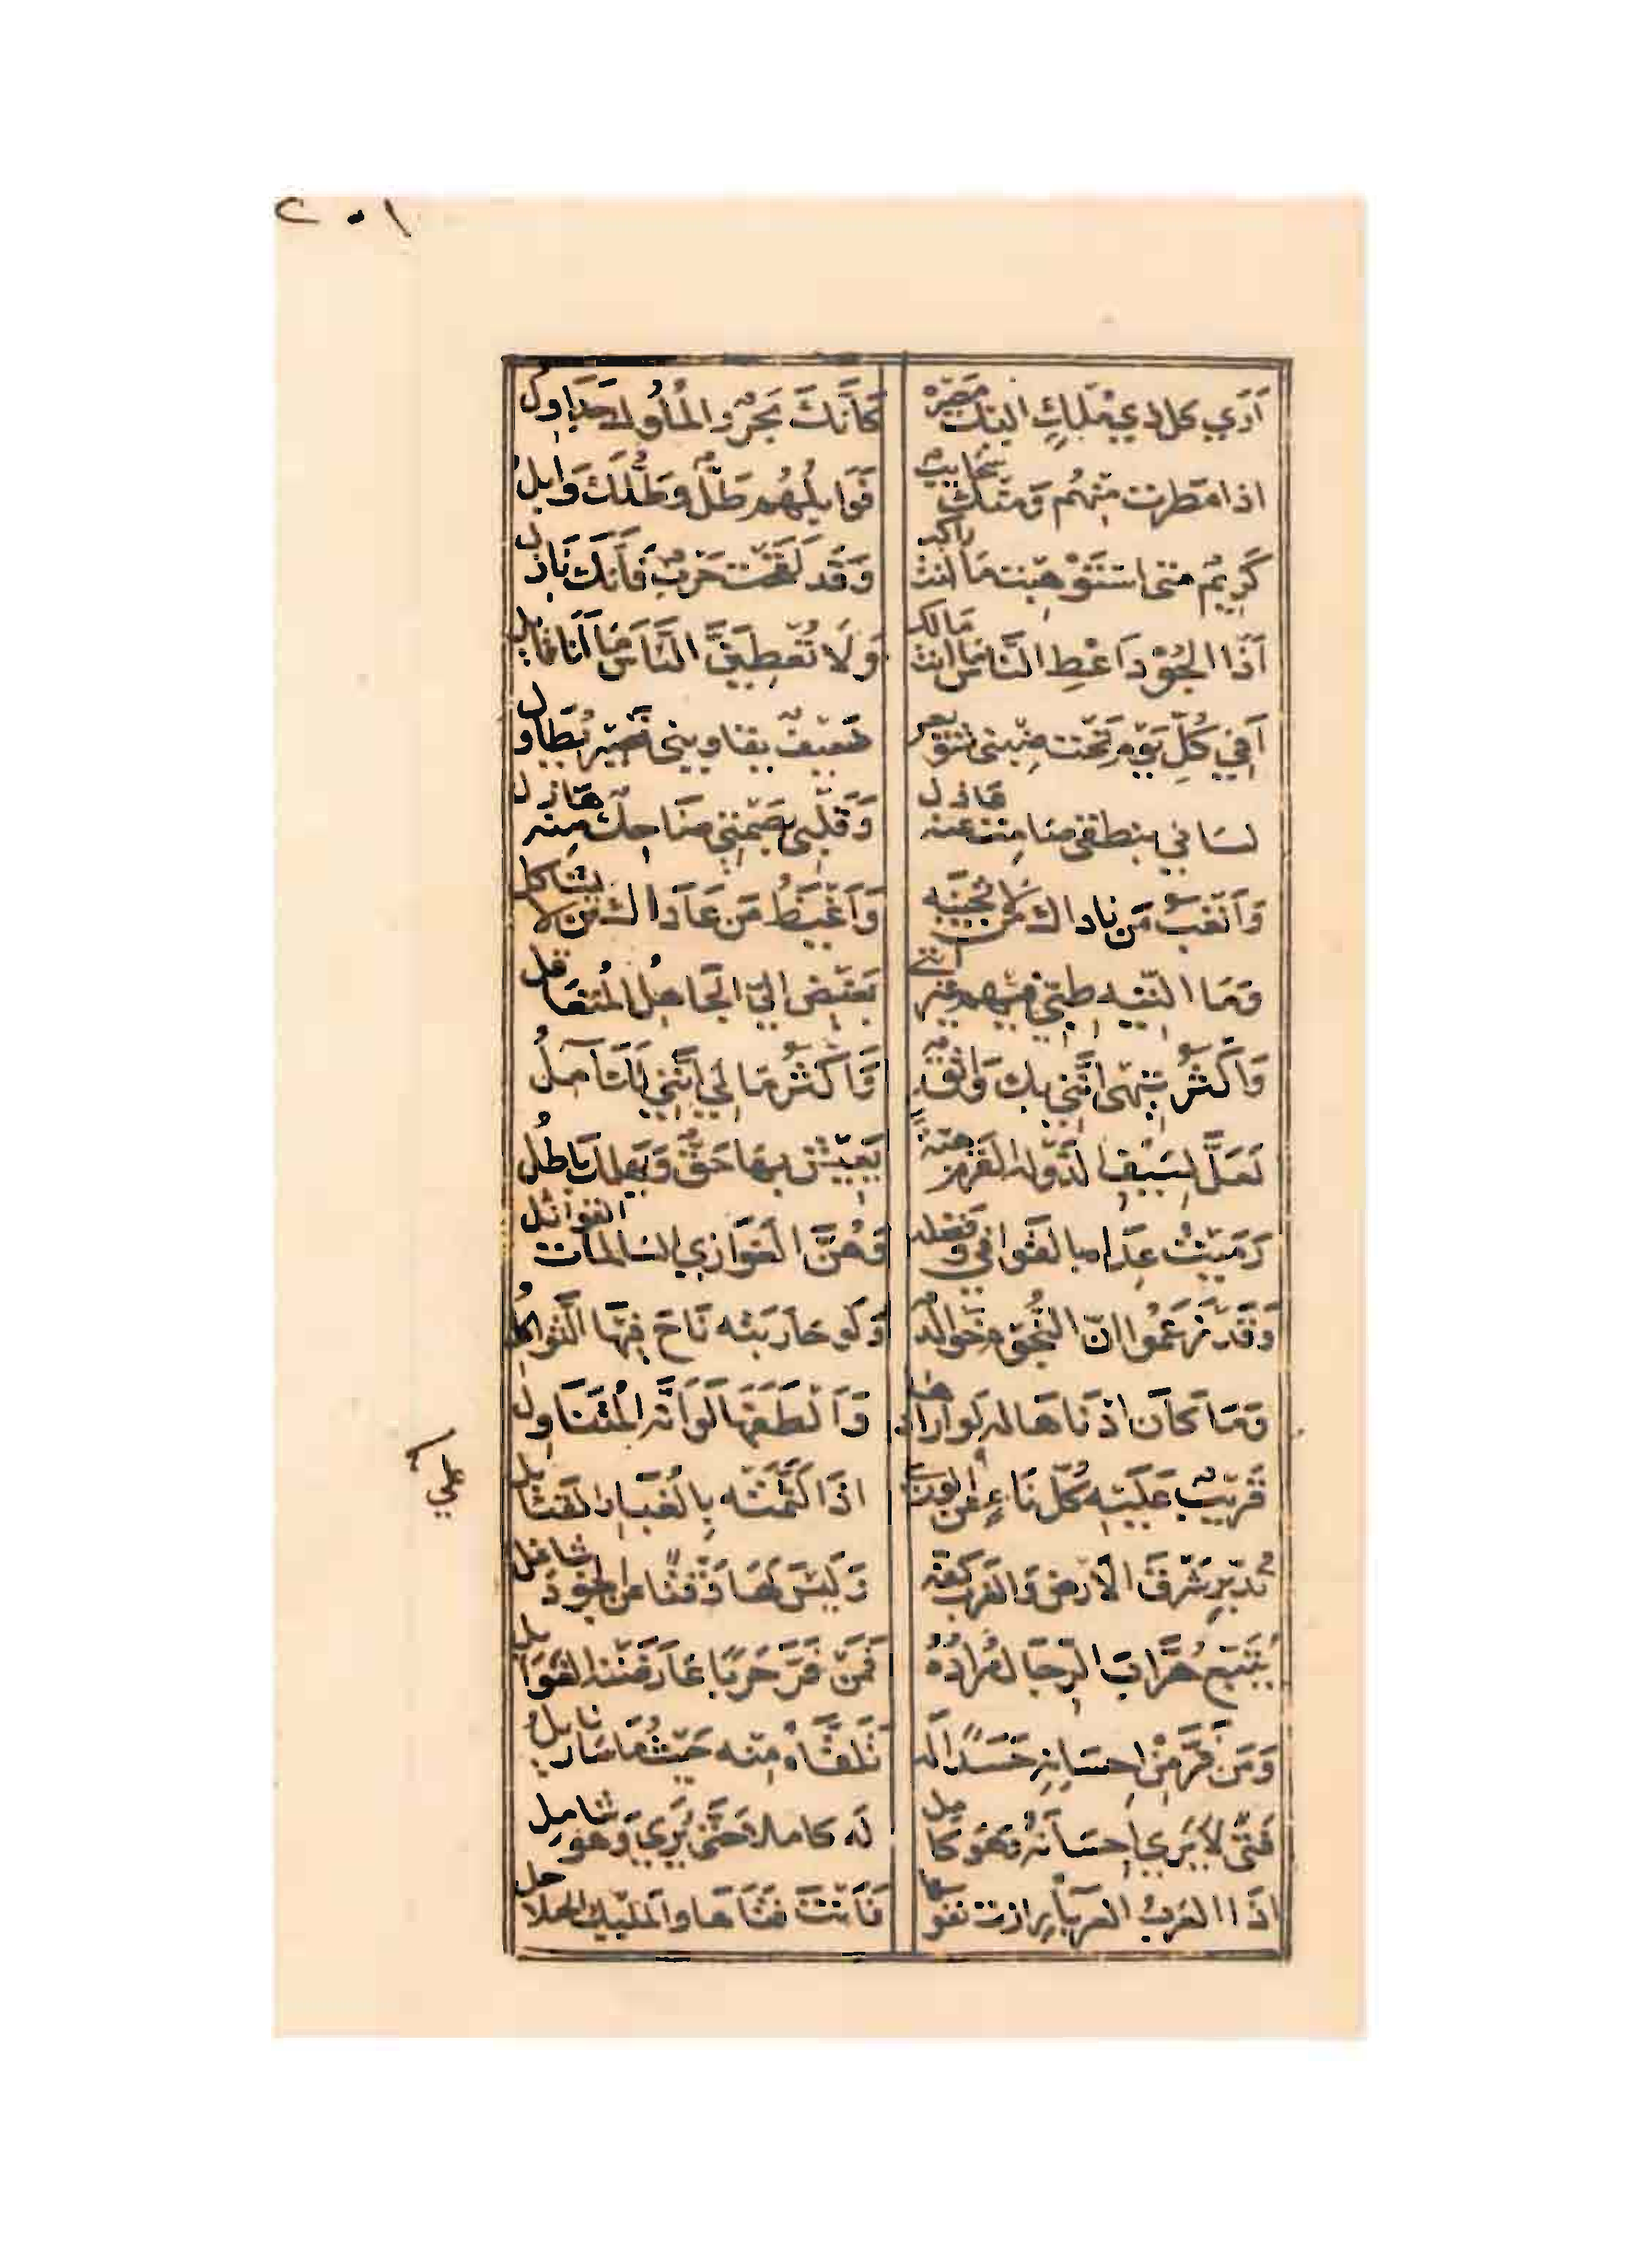 ٢٠١
اَرَي كل ذي مُلكٍ اليك مَصِيره كَاَنَّكَ بَحرٌ والمُلُوك جَدَاوِلُ
اذا مَطرت مِنهُم وَمنك سَحَايبٌ فَوَابِلُهُم طَلٌّ وطَلُّكَ وَابِلُ
كَرِيمٌ متى استُوْهِبت مَا انت راكب وَقَد لَقَحت حَربٌ فَاَنكَ نَازل
اَذَا الجُوْد اَعْطِ النَّاس مَا انت مَالك وَلَا تُعْطِيَنَّ النَّاسَ مَا اَنَا قايل
اَفِي كُلِّ يَوْم تَحت ضِبني شُوَيعر ضَعِيفٌ يقاويني قَصِير يُطَاول
لسَاني بنطقي صَامت عنه عَادل وَقَلبي بِصَمتي ضَاحِكٌ مِنه هَازل
وَاَتعَبُ مَن نَاداك مَن لَا تُجيبه وَاَغيَظُ مَن عَادَاك مَن لا يشاكل
وَمَا التِّيه طِبّي فيهم غير انني بَغيض اليّ الجَاهِلُ المُتغَافل
وَاَكثَرُ تيهي اَنَّني بك وَاثقٌ وَاَكثَرُ مَا لِي اَنَّني لَكَ آمِلُ
لَعَلَّ لِسَيْفِ الدَّولة القَرْم هبّةً يَعِيْش بِهَا حَقٌّ وَيهلك بَاطلُ
رَمَيْتُ عِدَاه بالقَوافي وفَضله وَهُنَّ الغَوَازي السَّالمات القوَاتل
وَقَد زَعَمُوا انّ النُّجُوم خَوالدٌ وَلَو حَارَبَته نَاحَ فِيهَا الثَّواكلُ
وَمَا كَان ادْنَاهَا له لَو ارادها وَاَلْطَفَهَا لَو اَنَّه المُتَنَاوِل
قَرِيْبٌ عَلَيْه كُلّ نَاءٍ عَلى الورى اذَا لَثَّمَتْه بِالغُبَار القَنَابل
علي
تُدَبِّر شَرْقَ الاَرض وَالغَرب كَفّه وَلَيْسَ لهَا وَقْتًا عن الجود شاغل
يُتَبِّع هُرَّابَ الرِّجَال مُرَادُهُ فَمَنْ فَرَّ حَرْبًا عَارَضَتْه الغَوَايل
وَمَن فَرَّ مِنْ اِحسَانِه حَسَدًا لَه تَلَقَّاهُ مِنْه حَيْثُ مَا سَار نَايلُ
فَتًى لَا يَرَي اِحسَانَهُ وَهُوَ كامل لَه كاملا حَتَّى يُرَي وَهو شامل
اذَا العَرَبُ العرباء رازت نفوسها فَاَنْتَ فَتَاهَا وَالمَلِيك الحلاحل